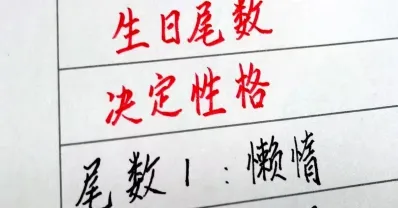 生日尾数
决定性格
尾数1:懒惰